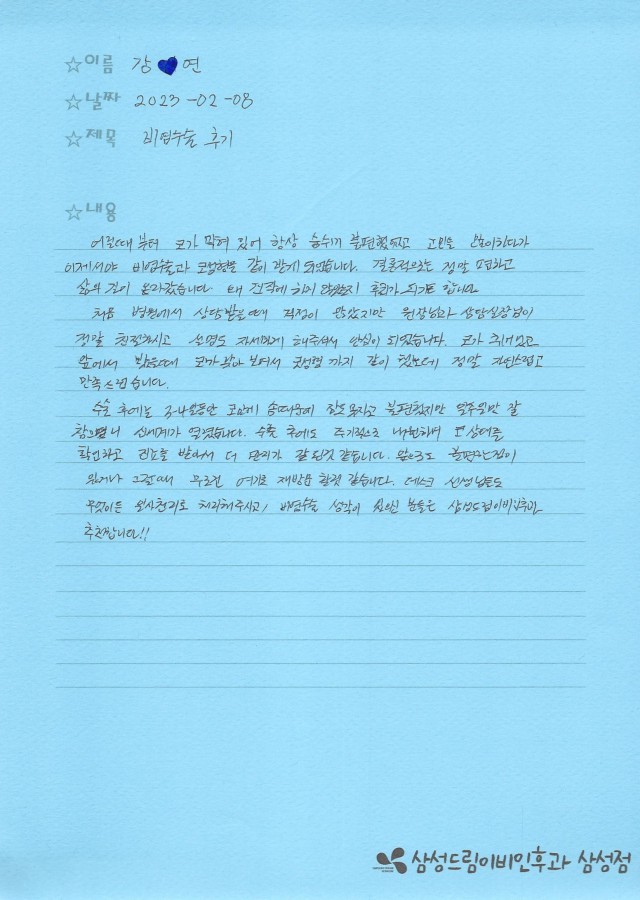 ☆이름 강♥연
☆날짜 2023-02-08
☆제목 비염수술 후기
☆내용
어렸을때부터 코가 막혀 있어 항상 숨쉬기 불편했었고 고민을 많이하다가
이제서야 비염수술과 코성형을 같이 받게 되었습니다. 결론적으로는 정말 편하고
삶의 질이 올라갔습니다. 왜 진작에 하지 않았는지 후회가 되기도 합니다.
처음 병원에서 상담받을때 걱정이 많았지만 원장님과 상담실장님이
정말 친절하시고 설명도 자세하게 해주셔서 안심이 되었습니다. 코가 휘어있고
앞에서 봤을때 코가 낮아 보여서 코성형 까지 같이 했는데 정말 자연스럽고
만족스럽습니다.
수술 후에는 3-4일동안 코안에 솜때문에 힘들었지고 불편했지만 일주일만 잘
참으니 신세계가 열렸습니다. 수술 후에도 주기적으로 내원하며 코 상태를
확인하고 치료를 받아서 더 관리가 잘 된것 같습니다. 앞으로도 불편한점이
있거나 그럴때 무조건 여기로 재방문 할것 같습니다. 데스크 선생님들도
무엇이든 일사천리로 처리해주시고, 비염수술 생각이 있으신 분들은 삼성드림이비인후과
추천합니다!!
삼성드림이비인후과 삼성점